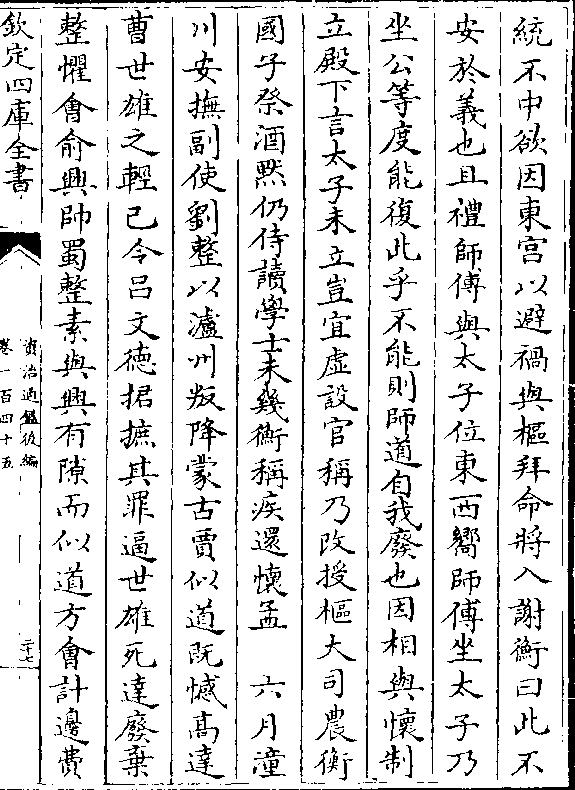 統不中欲因東宫以避禍與樞拜命將入謝衡曰此不
安於義也且禮師傅與太子位東西嚮師傅坐太子乃
坐公等度能復此乎不能則師道自我廢也因相與懷制
立殿下言太子未立豈宜虚設官稱乃改授樞大司農衡
國子祭酒黙仍侍讀學士未幾衡稱疾還懷孟　六月潼
川安撫副使劉整以瀘州叛降蒙古賈似道既憾髙達
曹世雄之輕己令吕文徳捃摭其罪逼世雄死達廢棄
整懼㑹俞興帥蜀整素與興有隙而似道方㑹計邊費
欽定四庫全書
資治通鑑後編
卷一百四十五
二十七